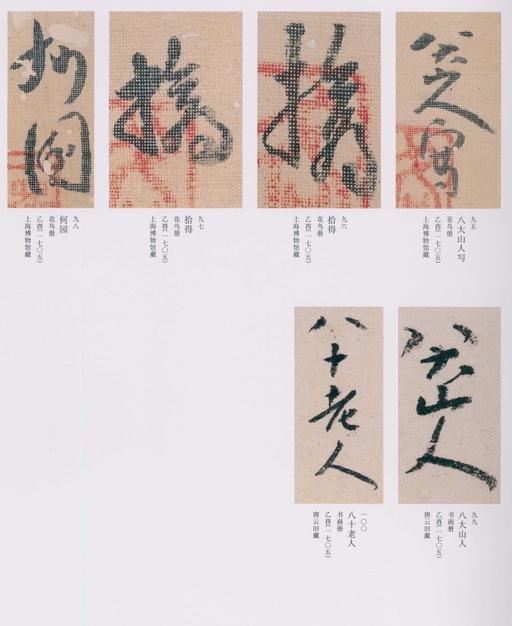 八大山人写
九五
八大山人写
花鸟册
乙酉(一七〇五)
上海博物馆藏
拾得
九六
拾得
花鸟册
乙酉(一七〇五)
上海博物馆藏
拾得
九七
拾得
花鸟册
乙酉(一七〇五)
上海博物馆藏
何园
九八
何园
花鸟册
乙酉(一七〇五)
上海博物馆藏
八大山人
九九
八大山人
书画册
乙酉(一七〇五)
唐云旧藏
八十老人
一〇〇
八十老人
书画册
乙酉(一七〇五)
唐云旧藏